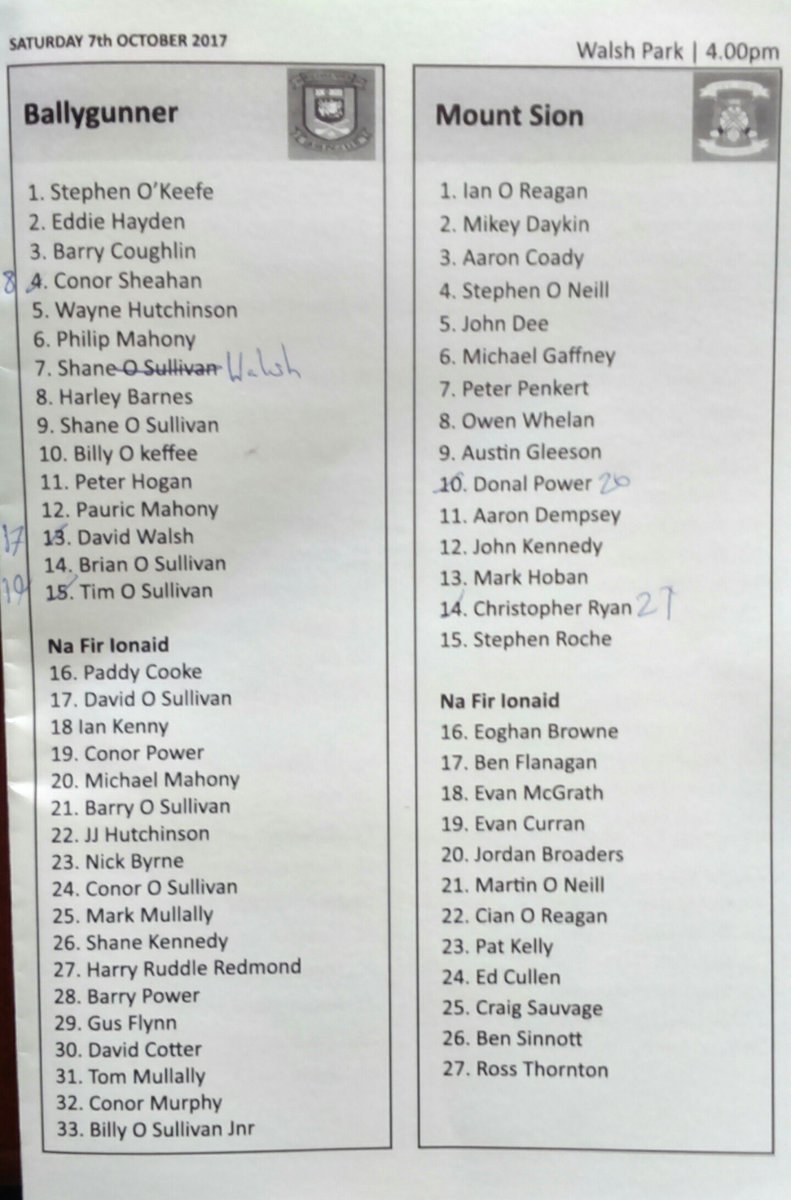 SATURDAY 7th OCTOBER 2017
Walsh Park | 4.00pm
Ballygunner
1. Stephen O'Keefe
2. Eddie Hayden
3. Barry Coughlin
8 4. Conor Sheahan
5. Wayne Hutchinson
6. Philip Mahony
7. Shane O Sullivan Walsh
8. Harley Barnes
9. Shane O Sullivan
10. Billy O keffee
11. Peter Hogan
12. Pauric Mahony
17 13. David Walsh
14. Brian O Sullivan
19 15. Tim O Sullivan
Na Fir Ionaid
16. Paddy Cooke
17. David O Sullivan
18 Ian Kenny
19. Conor Power
20. Michael Mahony
21. Barry O Sullivan
22. JJ Hutchinson
23. Nick Byrne
24. Conor O Sullivan
25. Mark Mullally
26. Shane Kennedy
27. Harry Ruddle Redmond
28. Barry Power
29. Gus Flynn
30. David Cotter
31. Tom Mullally
32. Conor Murphy
33. Billy O Sullivan Jnr
Mount Sion
1. Ian O Reagan
2. Mikey Daykin
3. Aaron Coady
4. Stephen O Neill
5. John Dee
6. Michael Gaffney
7. Peter Penkert
8. Owen Whelan
9. Austin Gleeson
10. Donal Power 26
11. Aaron Dempsey
12. John Kennedy
13. Mark Hoban
14. Christopher Ryan 27
15. Stephen Roche
Na Fir Ionaid
16. Eoghan Browne
17. Ben Flanagan
18. Evan McGrath
19. Evan Curran
20. Jordan Broaders
21. Martin O Neill
22. Cian O Reagan
23. Pat Kelly
24. Ed Cullen
25. Craig Sauvage
26. Ben Sinnott
27. Ross Thornton